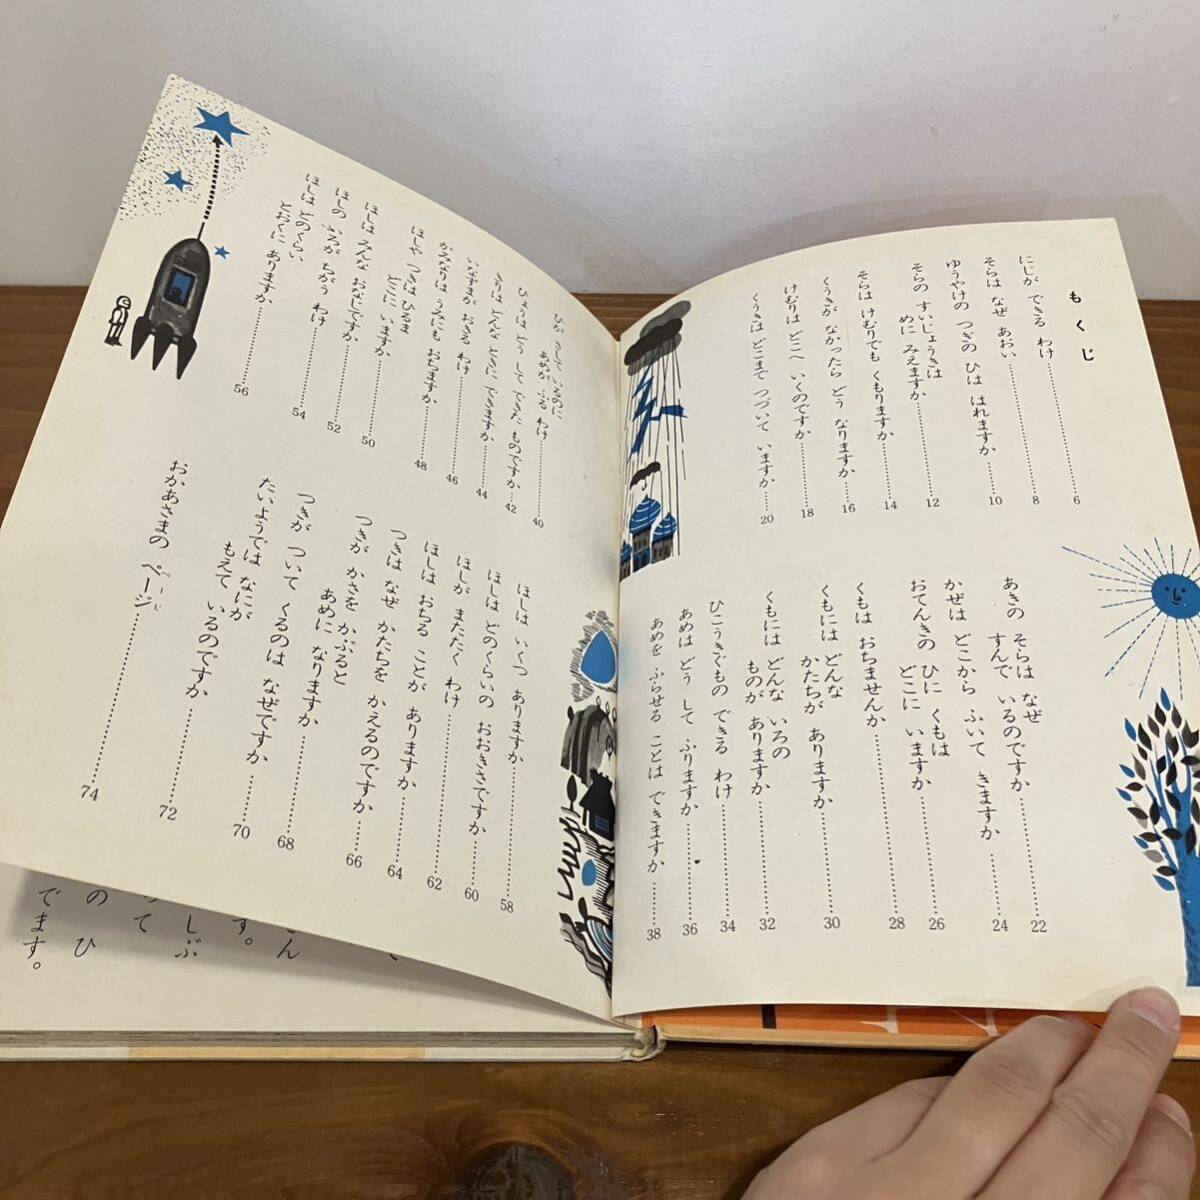 もくじ
にじが できる わけ……6
そらは なぜ あおい……8
ゆうやけの つぎの ひは はれますか……10
そらの すいじょうきは
めに みえますか……12
そらは けむりでも くもりますか……14
くうきが なかったら どう なりますか……16
けむりは どこへ いくのですか……18
くうきは どこまで つづいて いますか……20
あきの そらは なぜ
すんで いるのですか……22
かぜは どこから ふいて きますか……24
おてんきの ひに くもは
どこに いますか……26
くもは おちませんか……28
くもには どんな
かたちが ありますか……30
くもには どんな いろの
ものが ありますか……32
ひこうきぐもの できる わけ……34
あめは どう して ふりますか……36
あめを ふらせる ことは できますか……38
ひが て いるのに
あめが ふる わけ……40
ひょうは どう して できた ものですか……42
は どんな ところに できますか……44
いなずまが おきる わけ……46
かみなりは うみにも おちますか……48
ほしや つきは ひるま
どこに いますか……50
ほしは みんな おなじですか……52
ほしの いろが ちがう わけ……54
ほしは どのくらい
とおくに ありますか……56
ほしは いくつ ありますか……58
ほしは どのくらいの おおきさですか……60
ほしが またたく わけ……62
ほしは おちる ことが ありますか……64
つきは なぜ かたちを かえるのですか……66
つきが かさを かぶると
あめに なりますか……68
つきが ついて くるのは なぜですか……70
たいようでは なにが
もえて いるのですか……72
おかあさまの ページ……74
ん
す。
しぶ
って
のひ
でます。